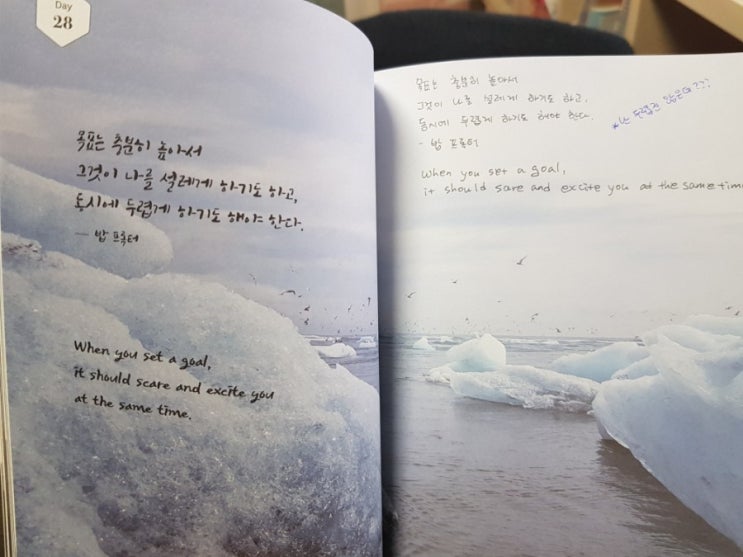 Day
28
목표는 충분히 높아서
그것이 나를 설레게 하기도 하고,
동시에 두렵게 하기도 해야 한다.
— 밥 프록터
When you set a goal,
it should scare and excite you
at the same time.
목표는 충분히 높아서
그것이 나를 설레게 하기도 하고,
동시에 두렵게 하기도 해야 한다.
- 밥 프록터
*난 두렵진 않은데???
When you set a goal,
it should scare and excite you at the same time